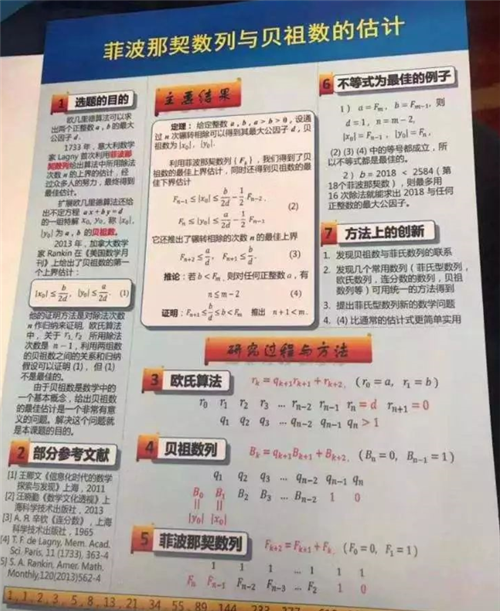 菲波那契数列与贝祖数的估计
1 选题的目的
欧几里德算法可以求
出两个正整数 a, b 的最大
公因子 d 。
1733 年，意大利数学
家 Lagny 首次利用菲波那
契数列给出算法中所用除法
次数 n 的上界的估计，经
过众多人的努力，最终得到
最佳估计。
扩展欧几里德算法还给
出不定方程 ax + by = d
的一组特解 x₀, y₀，称 |x₀|,
|y₀| 为 a, b 的贝祖数。
2013 年，加拿大数学
家 Rankin 在《美国数学月
刊》上给出了贝祖数的第一
个上界估计：
|x₀| ≤ b/2d, |y₀| ≤ a/2d (1)
他的证明方法是对除法次数
n 作归纳来证明. 欧氏算法
中，关于 r₁, r₂ 所用除法
次数是 n − 1，利用两组数
的贝祖数之间的关系和归纳
假设可以证明 (1)，但 (1)
不是最佳的。
由于贝祖数是数学中的
一个基本概念，给出贝祖数
的最佳估计是一个非常有意
义的问题。解决这个问题就
是本课题的目的。
2 部分参考文献
[1] 王鄂文《信息化时代的数学
探索与发现》上海，2011
[2] 汪晓勤《数学文化透视》上
海科学技术出版社，2013
[3] A. Я. 辛钦《连分数》，上海
科学技术出版社，1965
[4] T. F. de Lagny, Mem. Acad.
Sci. Paris, 11 (1733), 363-4
[5] S. A. Rankin, Amer. Math.
Monthly,120(2013)562-4
主要结果
定理：给定整数 a, b，a > b > 0，设通
过 n 次辗转相除可以得到其最大公因子 d，贝
祖数为 |x₀|，|y₀|。
利用菲波那契数列 { Fₖ }，我们得到了贝
祖数的最佳上界估计，同时还得到贝祖数的最
佳下界估计
Fₙ₋₁ ≤ |x₀| ≤ b/2d − 1/2 Fₙ₋₂,
(2)
Fₙ ≤ |y₀| ≤ a/2d − 1/2 Fₙ₋₁.
它还推出了辗转相除的次数 n 的最佳上界
Fₙ₊₂ ≤ a/d, Fₙ₊₁ ≤ b/d. (3)
推论：若 b < Fₘ，则对任何正整数 a，有
n ≤ m − 2 (4)
证明：Fₙ₊₁ ≤ b/d ≤ b < Fₘ 推出 n + 1 < m.
研究过程与方法
3 欧氏算法 rₖ = qₖ₊₁rₖ₊₁ + rₖ₊₂, (r₀ = a, r₁ = b)
r₀ r₁ r₂ r₃ ... rₙ₋₂ rₙ₋₁ rₙ = d rₙ₊₁ = 0
q₁ q₂ q₃ ... qₙ₋₂ qₙ₋₁ qₙ > 1
4 贝祖数列 Bₖ = qₖ₊₁Bₖ₊₁ + Bₖ₊₂, (Bₙ = 0, Bₙ₋₁ = 1)
q₁ q₂ q₃ ... qₙ₋₂ qₙ₋₁ qₙ
B₀ B₁ B₂ B₃ ... Bₙ₋₂ 1 0
|| ||
|y₀| |x₀|
5 菲波那契数列 Fₖ₊₂ = Fₖ₊₁ + Fₖ, (F₀ = 0, F₁ = 1)
1 1 1 ... 1 1 1
Fₙ Fₙ₋₁ Fₙ₋₂ Fₙ₋₃ ... F₂ 1 0
6 不等式为最佳的例子
1） a = Fₘ，b = Fₘ₋₁，则
d = 1，n = m − 2,
|x₀| = Fₙ₋₁，|y₀| = Fₙ.
(2) (3) (4) 中的等号都成立，所
以不等式都是最佳的。
2）b = 2018 < 2584 ( 第
18个菲波那契数 )，则最多用
16 次除法就能求出 2018 与任何
正整数的最大公因子。
7 方法上的创新
1. 发现贝祖数与菲氏数列的联系
2. 发现几个常用数列 ( 菲氏型数列，
欧氏数列，连分数的数列，贝祖
数列等 ) 可用统一的方法得到
3. 提出菲氏型数列新的数学问题
4. (4) 比通常的估计式更简单实用
1, 1, 2, 3, 5, 8, 13, 21, 34, 55, 89, 144, 233, 377